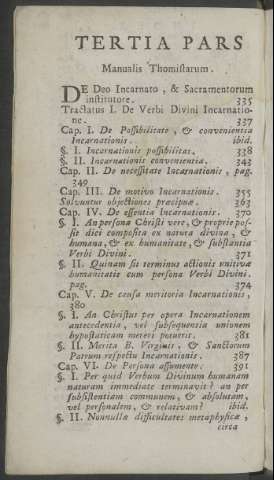 TERTIA PARS
Manualis Thomistarum.
DE Deo Incarnato, & Sacramentorum
institutore. 335
Tractatus I. De Verbi Divini Incarnatio-
ne. 337
Cap. I. De Possibilitate, & convenientia
Incarnationis. ibid.
§. I. Incarnationis possibilitas. 338
§. II. Incarnationis convenientia. 343
Cap. II. De necessitate Incarnationis, pag.
349
Cap. III. De motivo Incarnationis. 355
Solvuntur objectiones præcipuæ. 363
Cap. IV. De essentia Incarnationis. 370
§. I. An persona Christi vere, & proprie pos-
sit dici composita ex natura divina, &
humana, & ex humanitate, & substantia
Verbi Divini. 371
§. II. Quinam sit terminus actionis unitivæ
humanitatis cum persona Verbi Divini.
pag. 374
Cap. V. De causa meritoria Incarnationis,
380
§. I. An Christus per opera Incarnationem
antecedentia, vel subsequentia unionem
hypostaticam mereri potuerit. 381
§. II. Merita B. Virginis, & Sanctorum
Patrum respectu Incarnationis. 387
Cap. VI. De Persona assumente. 391
§. I. Per quid Verbum Divinum humanam
naturam immediate terminavit? an per
subsistentiam communem, & absolutam,
vel personalem, & relativam? ibid.
§. II. Nonnullæ difficultates metaphysicæ,
circa